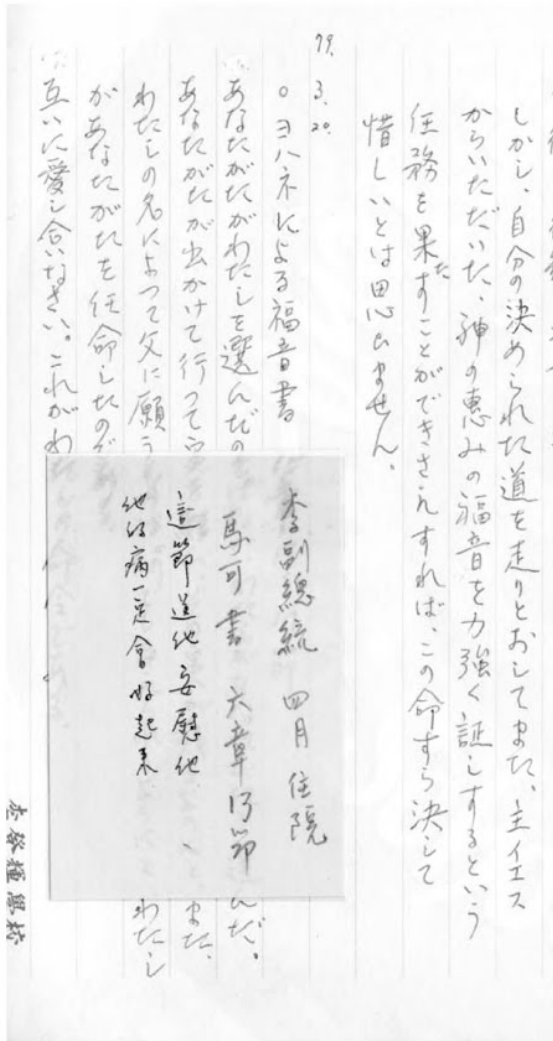 しかし、自分の決められた道を走りとおしてまた、主イエス
からいただいた、神の恵みの福音を力強く証しするという
任務を果すことができさえすれば、この命すら決して
た
惜しいとは思いません。
79. 3. 20.
○ヨハネによる福音書
あなたがたがわたしを選んだの
んだ。
あなたがたが出かけて行って
また、
わたしの名によって父に願う
わたし
があなたがたを任命したのぞ
互いに愛し合いなさい。これがわ
李副總統 四月 住院
馬可書 六章 13節
這節送他安慰他、
他的病一定會好起来